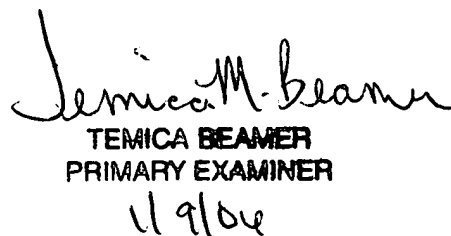 Temica M. Beamer
TEMICA BEAMER
PRIMARY EXAMINER
1/9/06